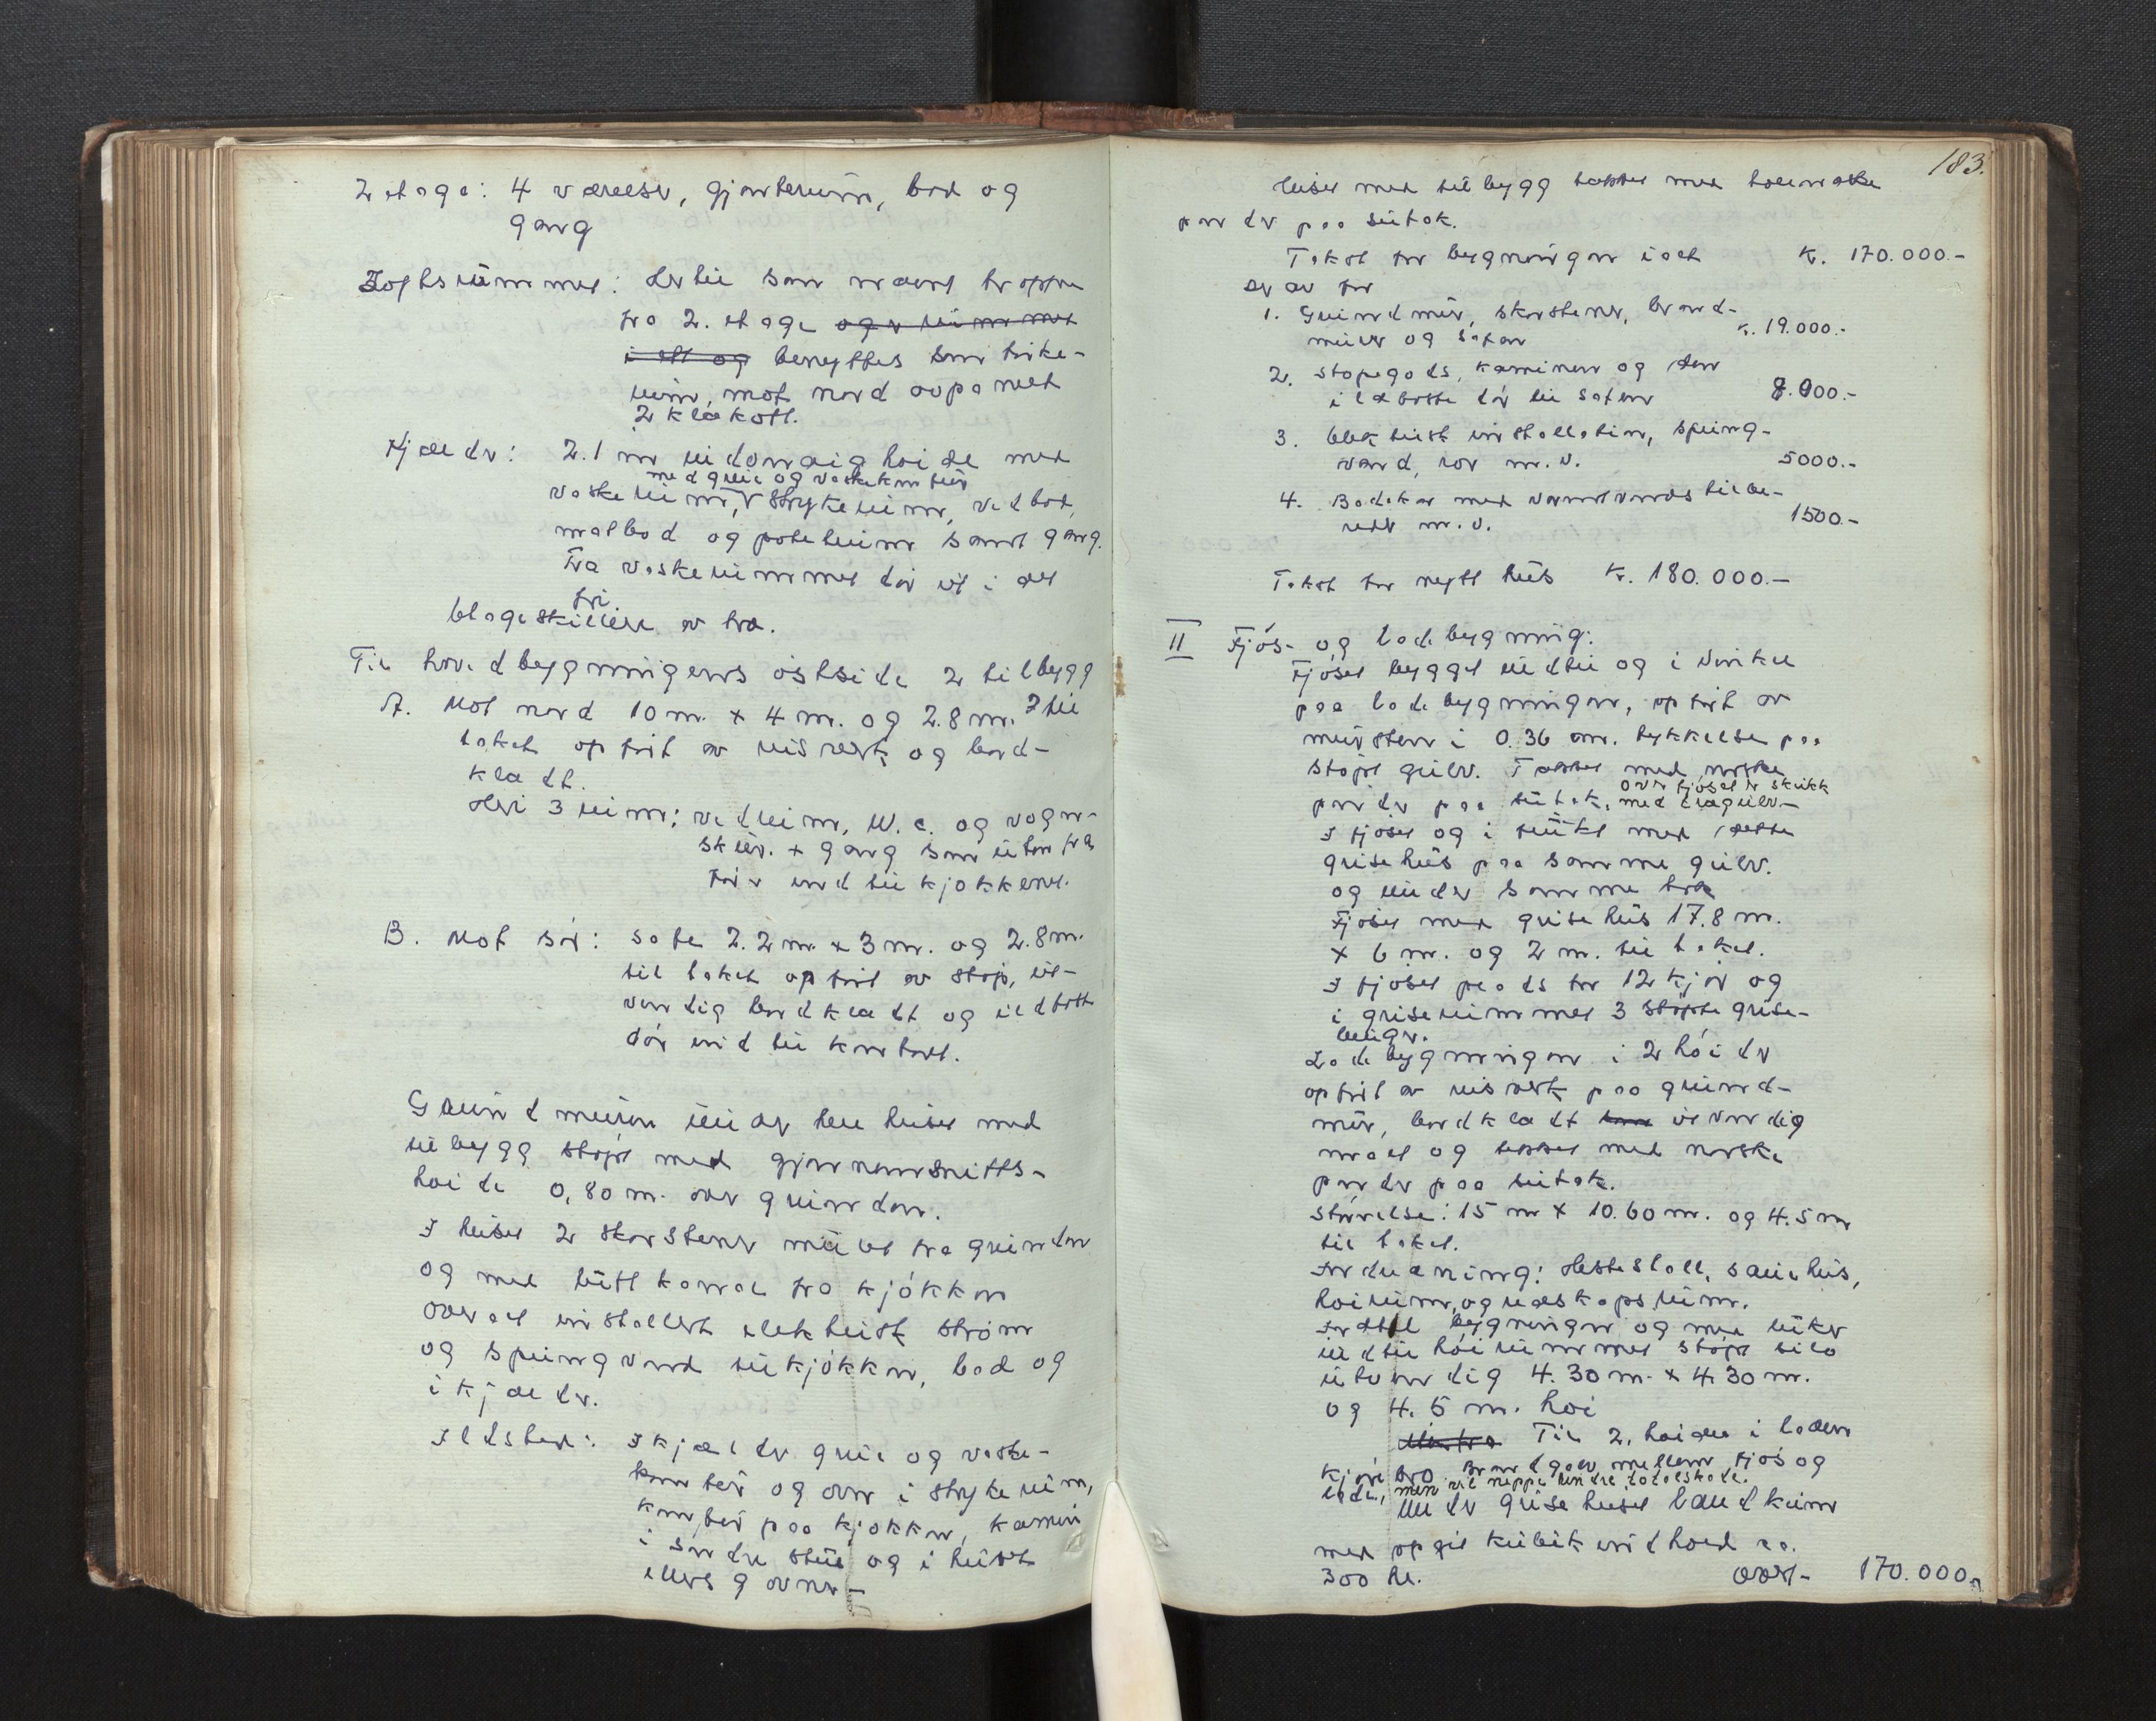 2 etage: 4 værelser, gjesterum, bad og
gang
Loftsrummet: Dertil som nævnt trappe
fra 2. etage og er rummet
i ett og benyttes som törke-
rum, mot nord oppanelt
2 klækott.
Kjælder: 2.1 m indvendig høide med
med grue og vaskekomfur
vaskerum, strykerum, vedbod,
matbod og poteterum samt gang.
Fra vaskerummet dör ut i det
fri.
Etageskillere av træ.
Til hovedbygningens östside 2 tilbygg
A. Mot nord 10 m. x 4 m. og 2.8 m. til
taket opført av uisverk og bord-
klædt.
Heri 3 rum; vedrum, W.C. og vogn-
skur. + gang som utenfra
fører ind til kjøkkenet.
B. Mot sør: safe 2.2 m. x 3 m. og 2.8 m.
til taket opført av støp, ut-
vendig bordklædt og ildfast
dör ind til kontoret.
Grundmuren under hele huset med
tilbygg støpt med gjennemsnitts-
høide 0,80 m. over grunden.
I huset 2 skorstener muret fra grunden
og med luftkanal fra kjökken
overalt installert elektrisk ström
og springvand til kjökken, bad og
i kjælder.
Ildsteder: I kjælder grue og vaske-
komfur og ovn i strykerum,
komfur paa kjøkken, kamin
i søndre stue og i huset
ellers 9 ovner –
183.
Huset med tilbygg tækket med hollandske
panner paa sutak.
Takst for bygningen i alt Kr. 170.000.-
Derav for
1. Grundmur, skorstener, brand-
murer og safen Kr. 19.000.-
2. Støpegods, kaminen og den
ildfaste dör til safen 8.000.-
3. Elektrisk installation, spring-
vand, rør m.v. 5000.-
4. Badekar med varmtvandsbere-
der m.v. 1500.-
Takst for nytt hus Kr. 180.000.-
II Fjös- og ladebygning:
Fjøset bygget indtil og i vinkel
paa ladebygningen, opført av
mursten i 0.36 m. tykkelse paa
støpt gulv. Tækket med norske
over fjøset er skukk
panner paa sutak, med trægulv–
I fjøset og i flukt med dette
grisehus paa samme gulv.
og under samme tak
Fjøset med grisehus 17.8 m.
x 6 m. og 2 m. til taket.
I fjøset plads for 12 kjør og
i griserummet 3 støpte grise-
binger.
Ladebygningen i 2 høider
opført av uisverk paa grund-
mur, bordklædt utvendig
malt og tækket med norske
panner paa sutak.
Størrelse: 15 m x 10.60 m. og 4.5 m
til taket.
Indredning: Hestestall, sauehus,
høirum, og redskapsrum.
Indtil bygningen og med luker
indtil høirummet støpt silo
utvendig 4.30 m. x 4.30 m.
og 4.5 m. høi
Til 2. høide i laden
kjørebro. Brandgavl mellem fjös og
lade, men vil neppe hindre totalskade.
Under grisehuset landkum
med opgit kubikindhold ca.
300 hl. Overf- 170.000.-